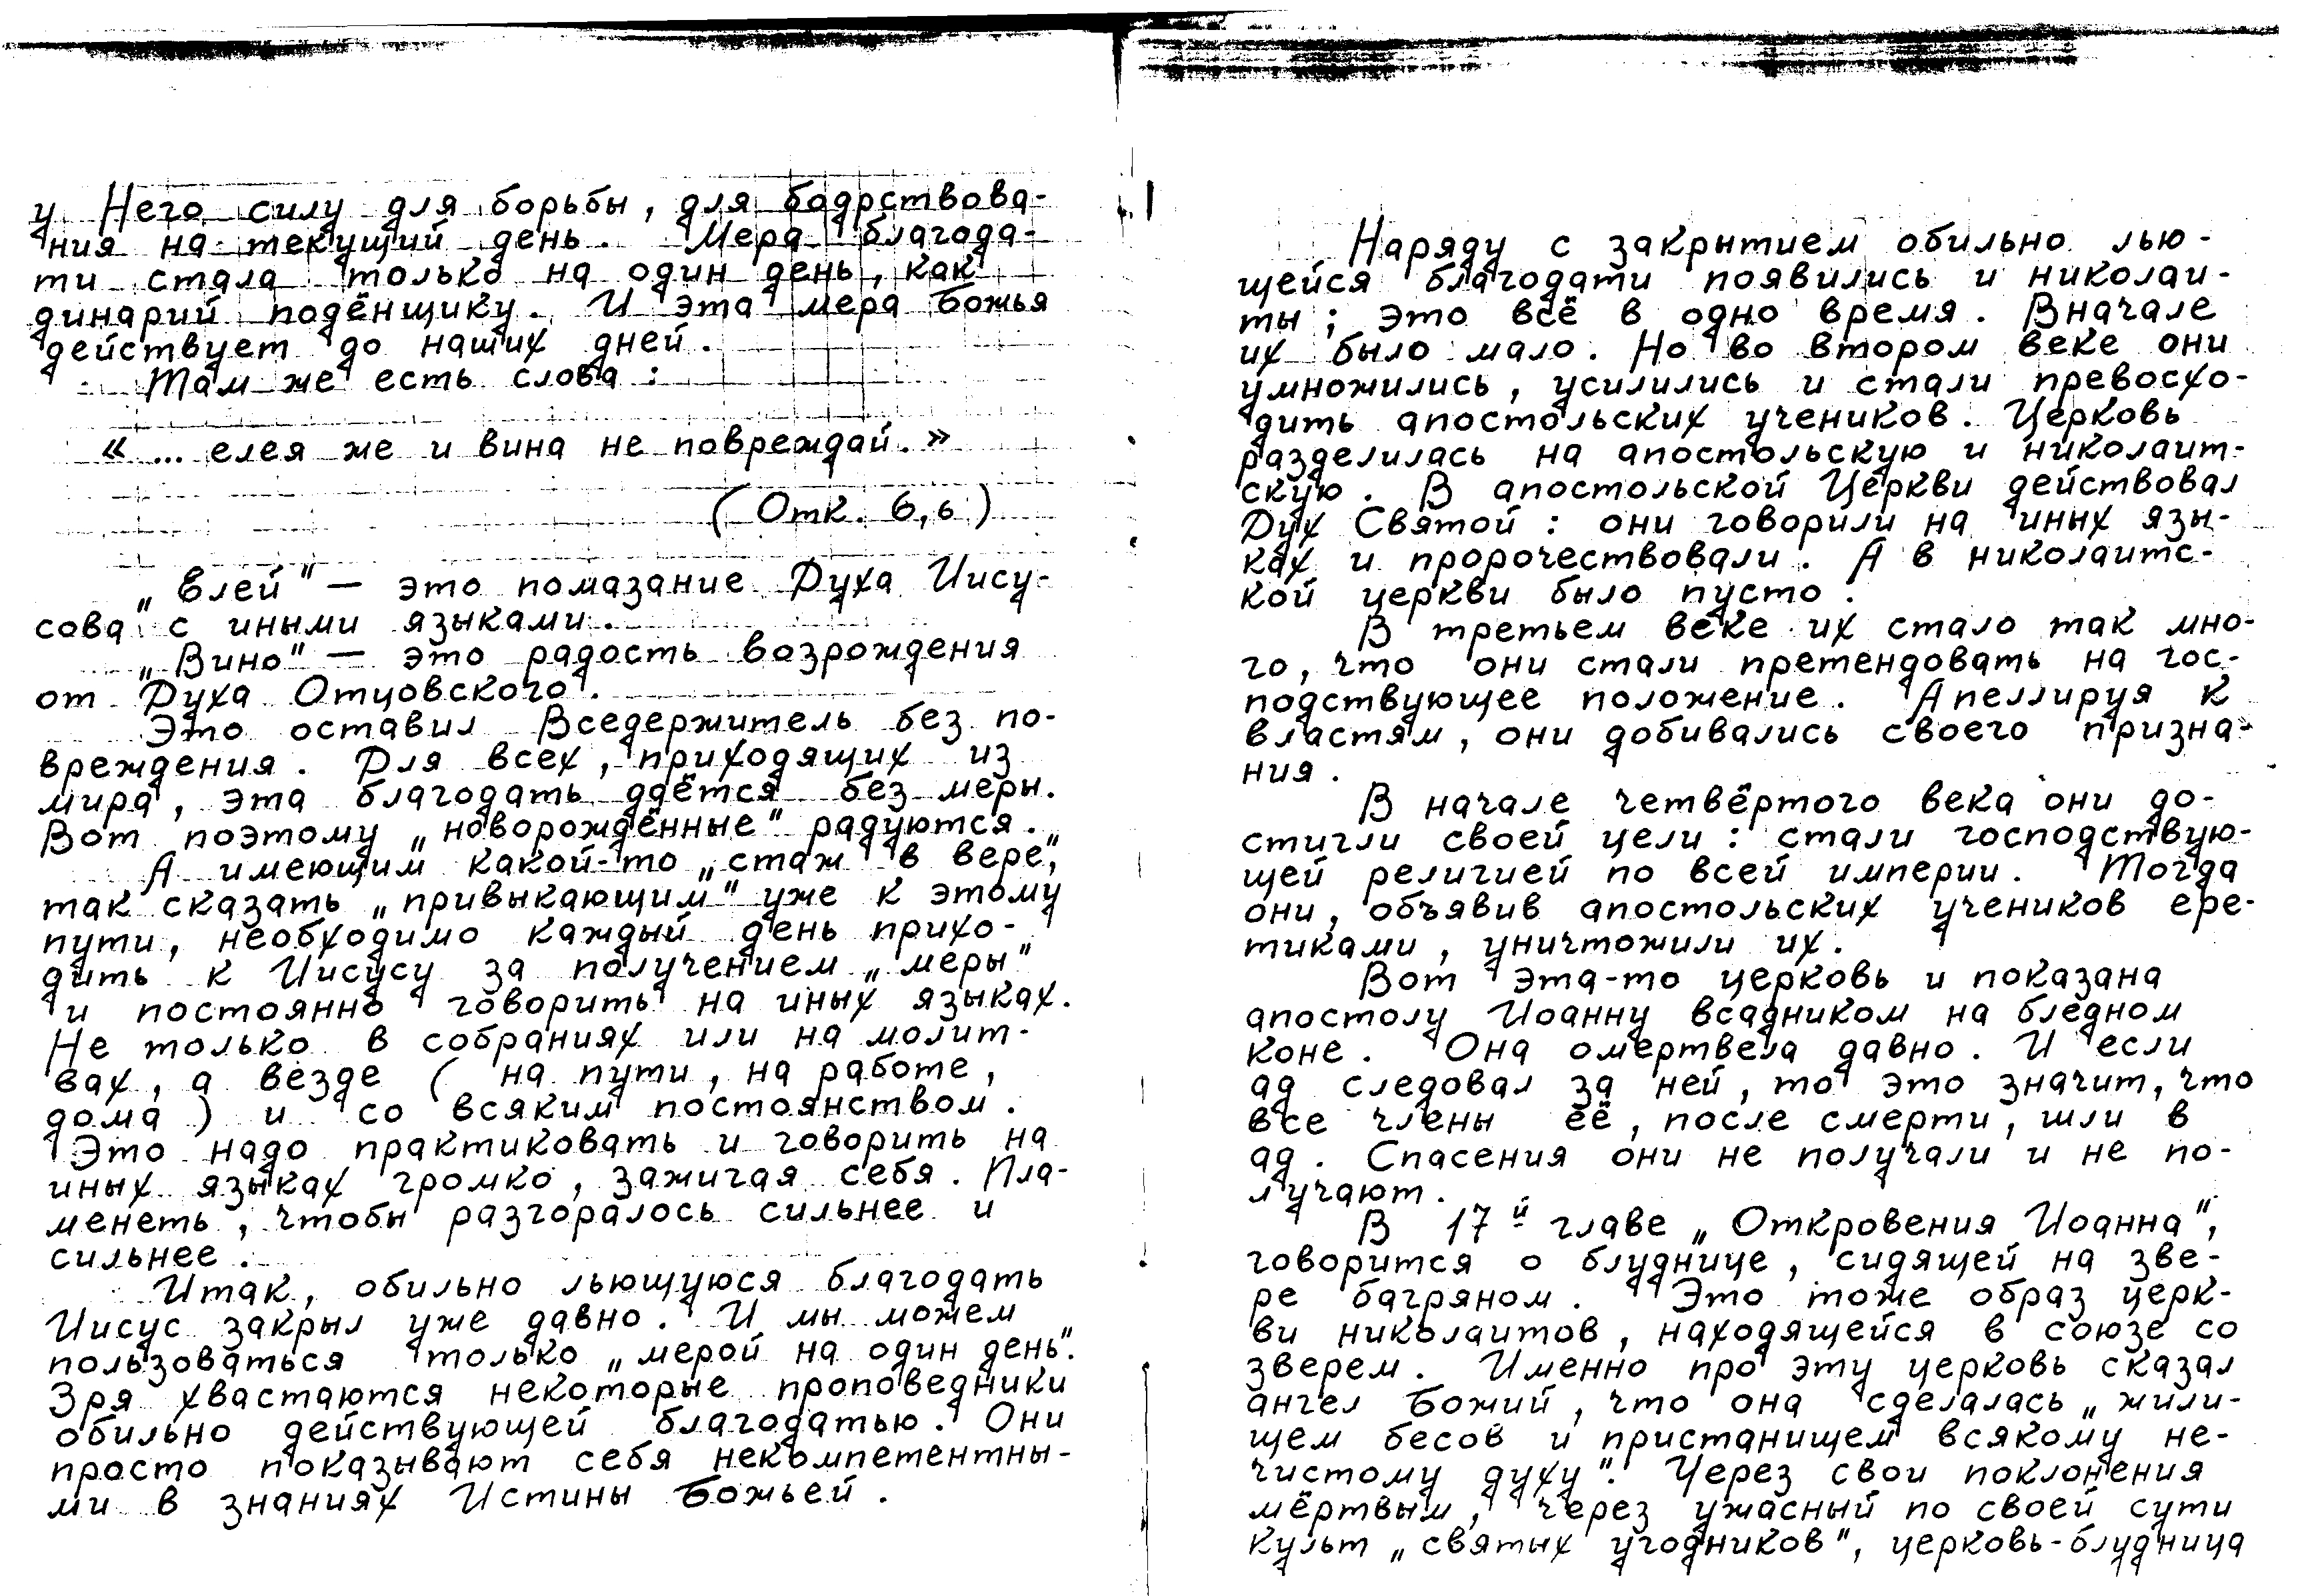 у Него силу для борьбы, для бодрствова-
ния на текущий день. Мера благода-
ти стала только на один день, как
динарий подёнщику. И эта мера Божья
действует до наших дней.
Там же есть слова:
«... елея же и вина не повреждай.»
(Отк. 6,6)
„Елей" — это помазание Духа Иису-
сова с иными языками.
„Вино" — это радость возрождения
от Духа Отцовского.
Это оставил Вседержитель без по-
вреждения. Для всех, приходящих из
мира, эта благодать даётся без меры.
Вот поэтому „новорождённые" радуются.
А имеющим какой-то „стаж в вере",
так сказать „привыкающим" уже к этому
пути, необходимо каждый день прихо-
дить к Иисусу за получением „меры"
и постоянно говорить на иных языках.
Не только в собраниях или на молит-
вах, а везде ( на пути, на работе,
дома ) и со всяким постоянством.
Это надо практиковать и говорить на
иных языках громко, зажигая себя. Пла-
менеть, чтобы разгоралось сильнее и
сильнее.
Итак, обильно льющуюся благодать
Иисус закрыл уже давно. И мы можем
пользоваться только „мерой на один день".
Зря хвастаются некоторые проповедники
обильно действующей благодатью. Они
просто показывают себя некомпетентны-
ми в знаниях Истины Божьей.
Наряду с закрытием обильно лью-
щейся благодати появились и николаи-
ты; это всё в одно время. Вначале
их было мало. Но во втором веке они
умножились, усилились и стали превосхо-
дить апостольских учеников. Церковь
разделилась на апостольскую и николаит-
скую. В апостольской Церкви действовал
Дух Святой: они говорили на иных язы-
ках и пророчествовали. А в николаитс-
кой церкви было пусто.
В третьем веке их стало так мно-
го, что они стали претендовать на гос-
подствующее положение. Апеллируя к
властям, они добивались своего призна-
ния.
В начале четвёртого века они до-
стигли своей цели: стали господствую-
щей религией по всей империи. Тогда
они, объявив апостольских учеников ере-
тиками, уничтожили их.
Вот эта-то церковь и показана
апостолу Иоанну всадником на бледном
коне. Она омертвела давно. И если
ад следовал за ней, то это значит, что
все члены её, после смерти, шли в
ад. Спасения они не получали и не по-
лучают.
В 17й главе „Откровения Иоанна",
говорится о блуднице, сидящей на зве-
ре багряном. Это тоже образ церк-
ви николаитов, находящейся в союзе со
зверем. Именно про эту церковь сказал
ангел Божий, что она сделалась „жили-
щем бесов и пристанищем всякому не-
чистому духу". Через свои поклонения
мёртвым, через ужасный по своей сути
культ „святых угодников", церковь-блудница